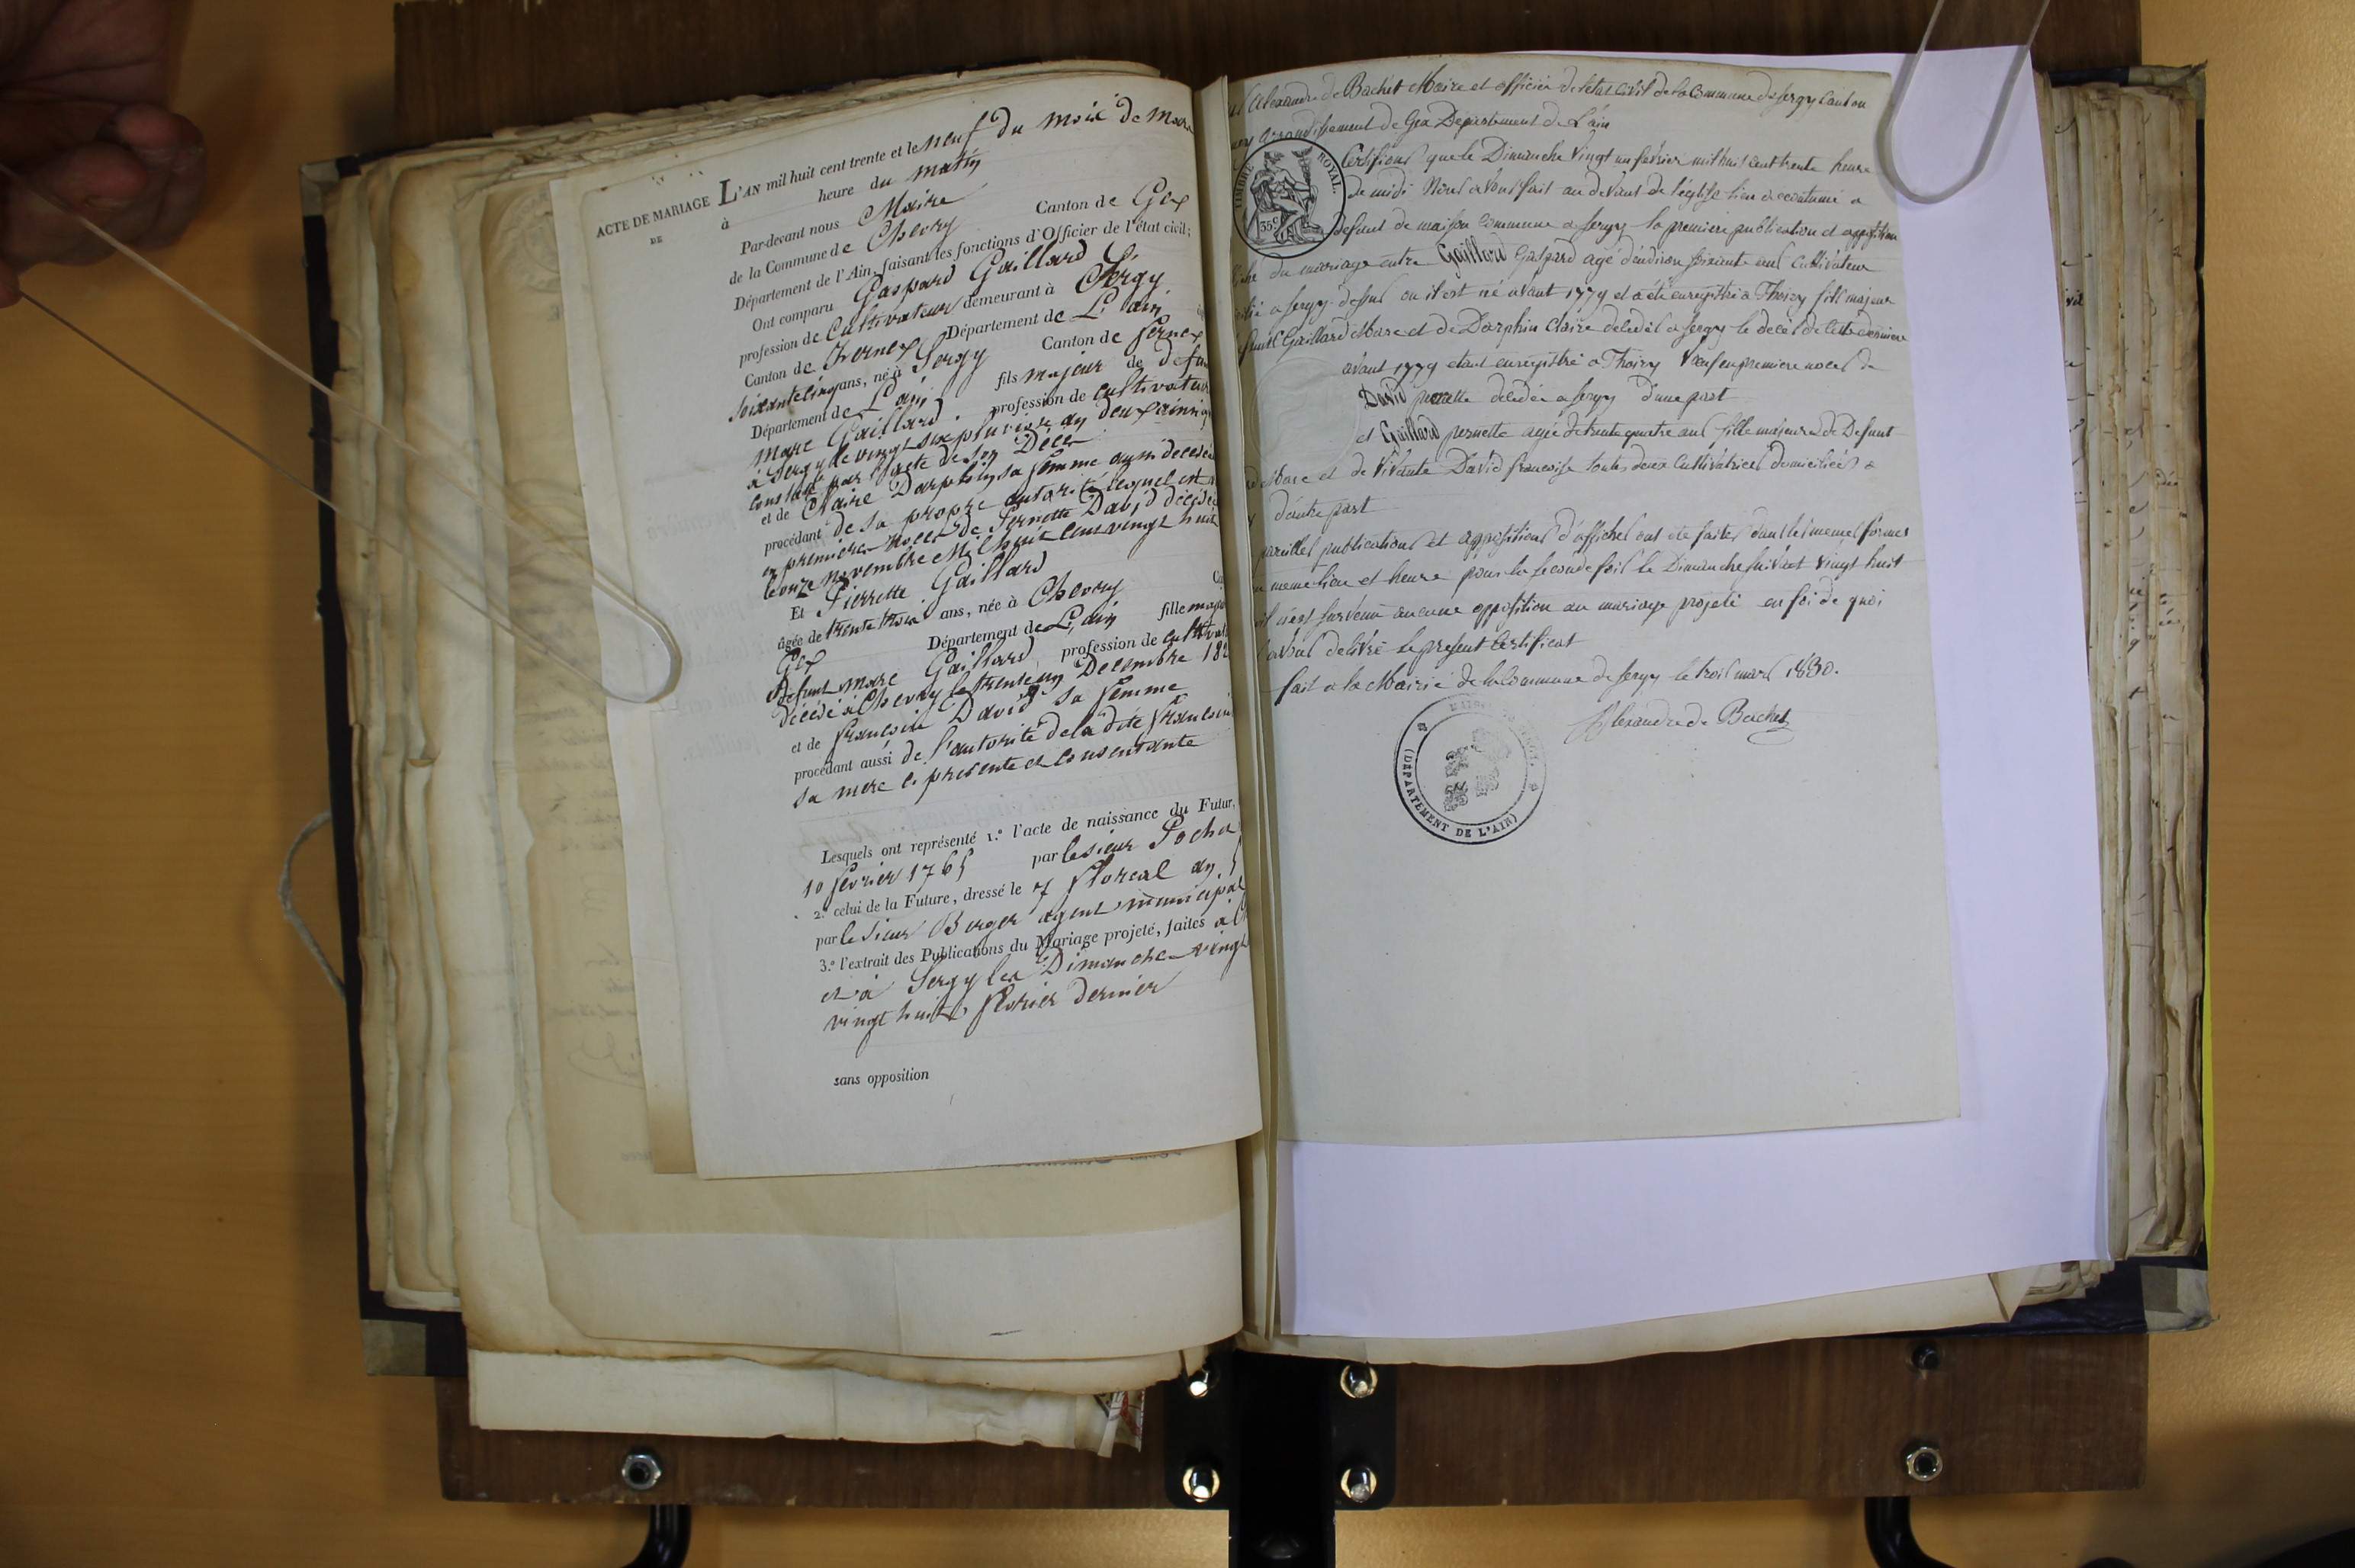 ACTE DE MARIAGE L'AN mil huit cent trente et le neuf du moix de Mars
DE à heure du matin
Par-devant nous Maire
de la Commune de Chevry Canton de Gex
Département de l'Ain, faisant les fonctions d'Officier de l'état civil;
Ont comparu Gaspard Gaillard
profession de Cultivateur demeurant à Sergy
Canton de Fernex Département de L'ain
soixante cinq ans, né à Sergy Canton de fernex
Département de L'ain fils majeur de defunt
Marc Gaillard profession de cultivateur
à Sergy le vingt six pluviose an deux ainsi
constaté par l'acte de son Décè
et de Claire Darphin sa femme aussi decedée
procédant de sa propre autorité lequel est
en premiere Noces de Pernette David décédée
le onze Novembre Mil huit cent vingt huit
Et Pierrette Gaillard
âgée de trente trois ans, née à Chevry
Gex Département de L'ain fille majeure
defunt Marc Gaillard profession de cultivat
décédé à Chevry le trente un Decembre 182
et de francoise David sa femme
procédant aussi de l'autorité de la dite francoise
sa mere ci présente et consentante
Lesquels ont représenté 1.º l'acte de naissance du Futur,
10 fevrier 1765 par le sieur Pocha
2.º celui de la Future, dressé le 7 floreal an 5
par le sieur Berger agent municipal
3.º l'extrait des Publications du Mariage projeté, faites à
et à Sergy les Dimanche vingt
vingt huit fevrier dernier
sans opposition
Alexandre de Bachet Maire et officier de letat civil de la Commune de Sergy Canton
arrondissement de Gex Departement de L'ain
TIMBRE ROYAL.
35c
Certifions que le Dimanche Vingt un fevrier mil huit cent trente heure
de midi Nous avons fait au devant de l'église lieu accoutumé a
defaut de maison Commune a sergy la premiere publication et apposition
du mariage entre Gaillard Gaspard agé denviron soixante ans Cultivateur
a sergy dessus ou il est né avant 1779 et a été enregistré a Thoiry fils majeur
Gaillard Marc et de Darphin Claire décédés a sergy le deces de cette derniere
avant 1779 etant enregistré a Thoiry Veuf en premiere noces de
David pernette décédée a sergy d'une part
et Gaillard pernette agée de trente quatre ans fille majeure de Defunt
Marc et de Vivante David francoise toutes deux Cultivatrices domiciliées a
d'autre part
pareilles publications et appositions d'affiches ont été faites dans les memes formes
meme lieu et heure pour la seconde fois le Dimanche suivant vingt huit
il n'est survenu aucune opposition au mariage projeté en foi de quoi
avons delivré le present Certificat
fait a la Mairie de la Commune de sergy le trois mars 1830.
Alexandre de Bachet
(DÉPARTEMENT DE L'AIN)